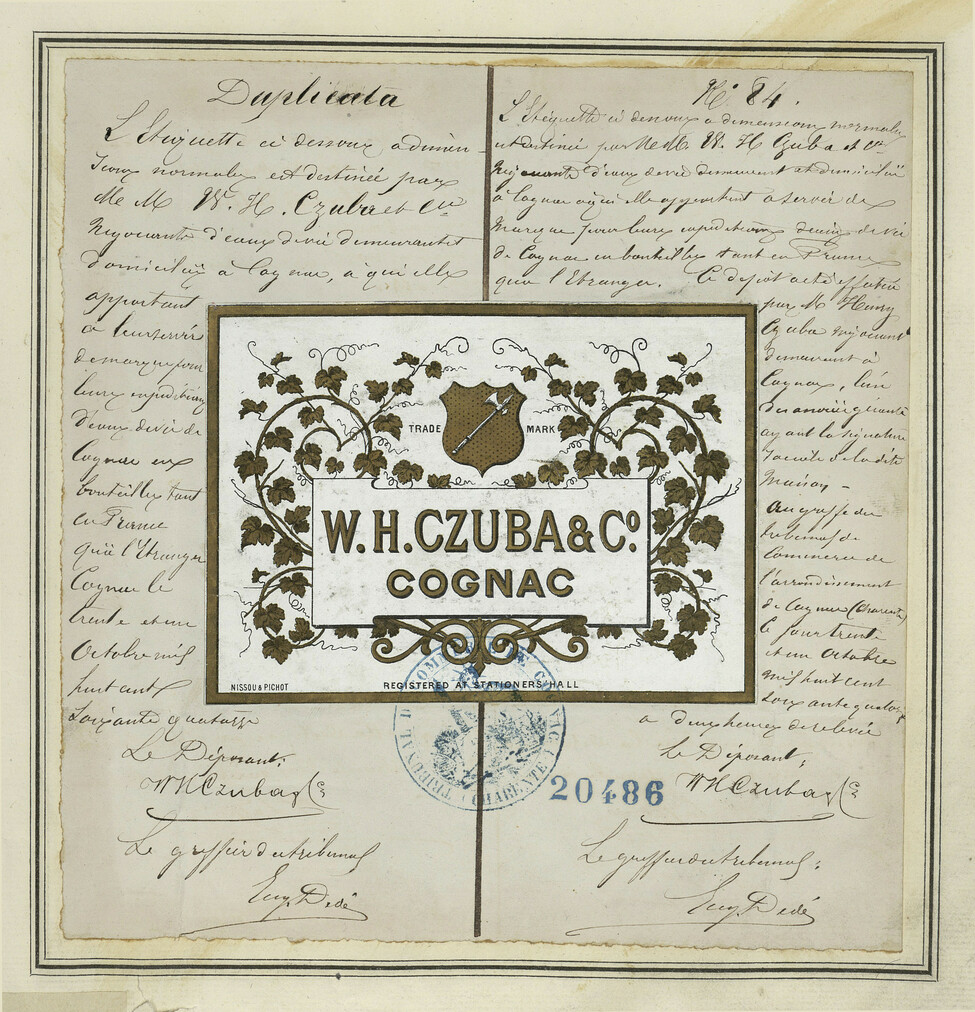 Duplicata
L'Etiquette ci dessous a dimen-
sions normales est destinée par
M M W. H. Czuba et Cie
Negociants d'eaux de vie demeurant et
domiciliés à Cognac, à qui elle
appartient
a leur servir
de marque pour
leurs expéditions
d'eaux de vie de
Cognac en
bouteilles tant
en France
qu'à l'Etranger
Cognac le
trente et un
Octobre mil
huit cent
soixante quatorze
Le Déposant:
W H Czuba & Co
Le greffier du tribunal
Eug. Dedé
No. 84.
L'Etiquette ci dessous a dimensions normales
est destinée par M M. W. H Czuba et Cie
Negociants d'eaux de vie demeurant et domiciliés
à Cognac a qui elle appartient a servir de
Marque pour leurs expéditions d'eaux de vie
de Cognac en bouteilles tant en France
que l'Etranger. Ce depot a été effectué
par M Henry
Czuba négociant
demeurant à
Cognac, l'un
des
ayant la signature
sociale de la dite
Maison -
Au greffe du
tribunal de
Commerce de
l'arrondissement
de Cognac (Charente)
le jour trente
et un Octobre
mil huit cent
soixante quatorze
a deux heures de relevée
Le Déposant,
W H Czuba & Co
Le greffier du tribunal,
Eug. Dedé
TRADE MARK
W. H. CZUBA & Co.
COGNAC
NISSOU & PICHOT
REGISTERED AT STATIONERS' HALL
TRIBUNAL DE COMMERCE DE COGNAC (CHARENTE)
20486